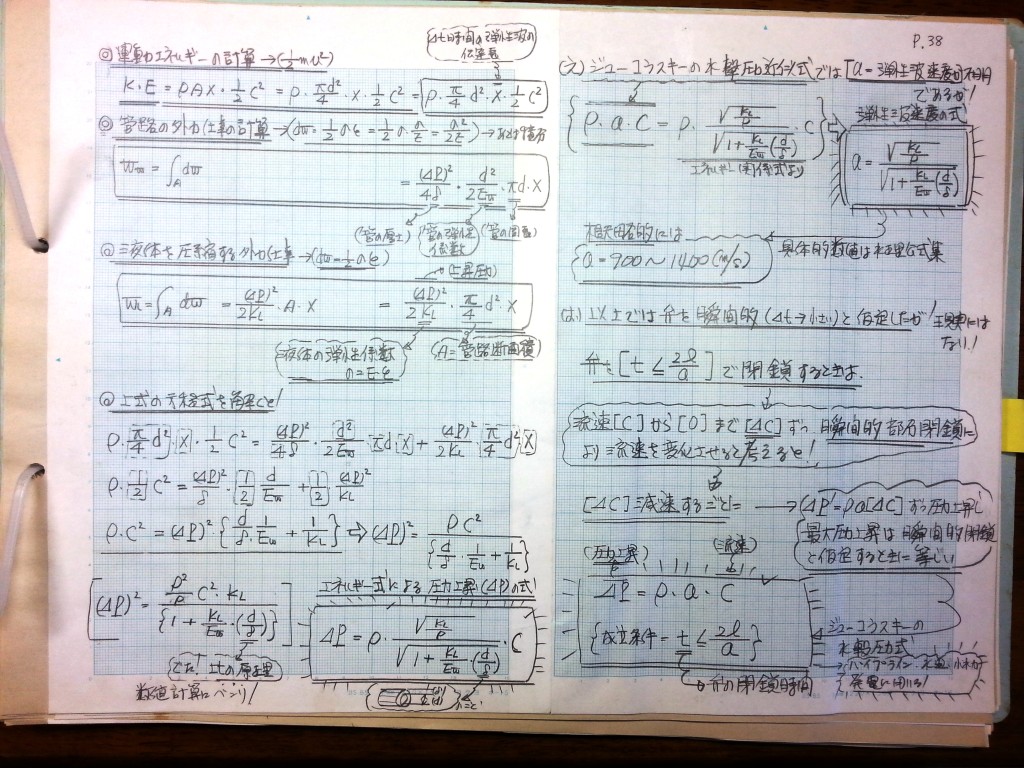 Δt時間の弾性波の
伝達長
◎ 運動エネルギーの計算→(½mv²)
K・E = ρAX・½C² = ρ・π/4 d²・X・½C² = ρ・π/4 d²・X・½C²
◎ 管路の外力仕事の計算→(dw=½σε=½σ・σ/E=σ²/2E)→
Ww=∫A dw = (ΔP)²/4δ・d²/2Ew・πd・X
(管の厚さ) (管の弾性係数) (管の周長)
◎ 液体を圧縮する外力仕事→(dw=½σε)
(上昇圧力)
WL=∫A dw = (ΔP)²/2KL・A・X = (ΔP)²/2KL・π/4 d²・X
液体の弾性係数
σ=E・ε
(A=管路断面積)
◎ 上式の方程式を解くと!
ρ・[π/4 d²]・[X]・½C² = (ΔP)²/4δ・d²/2Ew・πd[X] + (ΔP)²/2KL[π/4 d²][X]
ρ・[1/2]C² = (ΔP)²/δ・[1/2] d/Ew + [1/2] (ΔP)²/KL
ρ・C² = (ΔP)²・{d/δ・1/Ew + 1/KL} ⇨ (ΔP)² = ρC²/{d/δ・1/Ew + 1/KL}
(ΔP)² = ρ²/ρ C²・KL/{1+KL/Ew・(d/δ)}
エネルギー式による圧力上昇(ΔP)の式
ΔP = ρ・√(KL/ρ)/√(1+KL/Ew・(d/δ))・C
でた!
数値計算にベンリ!
P.38
(え) ジューコフスキーの水撃圧近似式では「a=弾性波速度」が採用
であるが!
{ρ・a・C = ρ・√(KL/ρ)/√(1+KL/Ew(d/δ))・C}
エネルギー関係式より
弾性波速度の式
a = √(KL/ρ)/√(1+KL/Ew(d/δ))
概略的には
{a=900～1400(m/s)
具体的数値は水理公式集
(お) 以上では弁を瞬間的(Δt→小さい)と仮定したが! 現実には
ない!
弁を[t≦2l/a]で閉鎖するときは、
流速[C]から[0]まで[ΔC]ずつ瞬間的部分閉鎖に
より流速を変化させると考えると!
[ΔC]減速するごとに→[ΔP'=ρa[ΔC]ずつ圧力上昇し
最大圧力上昇は瞬間的閉鎖
と仮定するときに等しい
(圧力上昇) (流速)
ΔP = ρ・a・C
{成立条件=t≦2l/a}
弁の閉鎖時間
ジューコフスキーの
水撃圧式
パイプライン
発電に用いる!